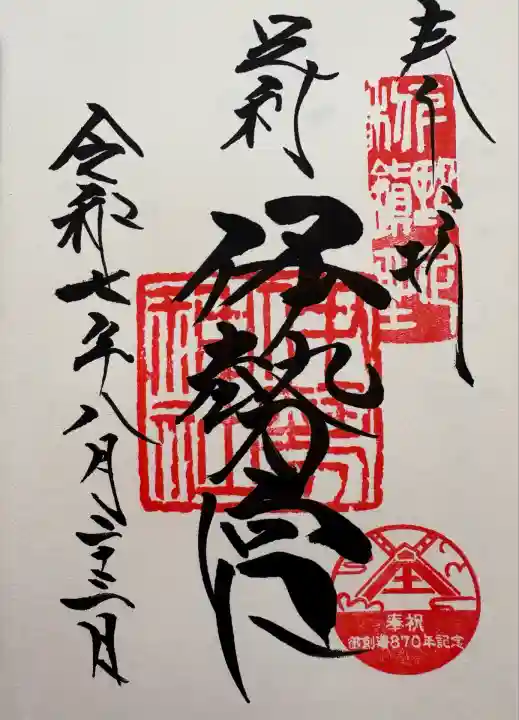 奉拝
足利
伊勢宮
令和七年八月二十三日
奉祝
御創建870年記念